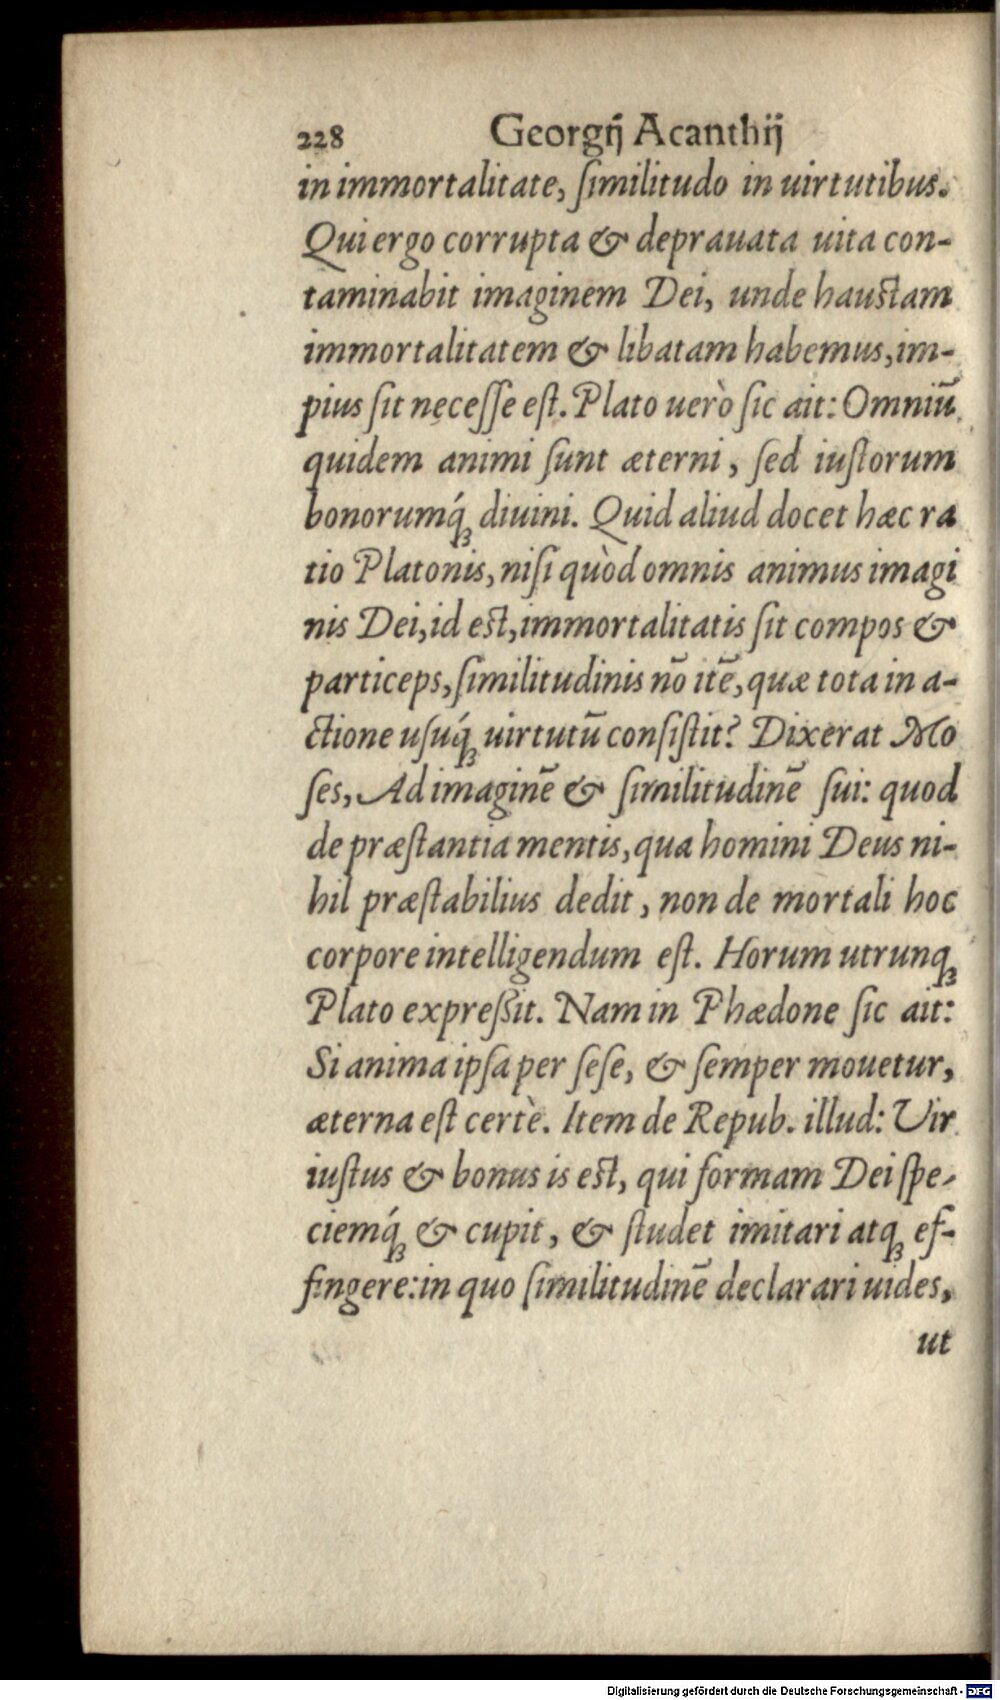 228 Georgij Acanthij
in immortalitate, ſimilitudo in uirtutibus.
Qui ergo corrupta & deprauata uita con-
taminabit imaginem Dei, unde hauſtam
immortalitatem & libatam habemus, im-
pius ſit neceſſe eſt. Plato uerò ſic ait: Omniū
quidem animi ſunt æterni, ſed iuſtorum
bonorumq́; diuini. Quid aliud docet hæc ra
tio Platonis, niſi quòd omnis animus imagi
nis Dei, id eſt, immortalitatis ſit compos &
particeps, ſimilitudinis nō itē, quæ tota in a-
ctione uſuq́; uirtutū conſiſtit? Dixerat Mo
ſes, Ad imaginē & ſimilitudinē ſui: quod
de præſtantia mentis, qua homini Deus ni-
hil præſtabilius dedit, non de mortali hoc
corpore intelligendum eſt. Horum utrunq;
Plato expreßit. Nam in Phædone ſic ait:
Si anima ipſa per ſeſe, & ſemper mouetur,
æterna eſt certè. Item de Repub. illud: Vir
iuſtus & bonus is eſt, qui formam Dei ſpe-
ciemq́; & cupit, & ſtudet imitari atq; ef-
fingere: in quo ſimilitudinē declarari uides,
ut
Digitalisierung gefördert durch die Deutsche Forschungsgemeinschaft - DFG